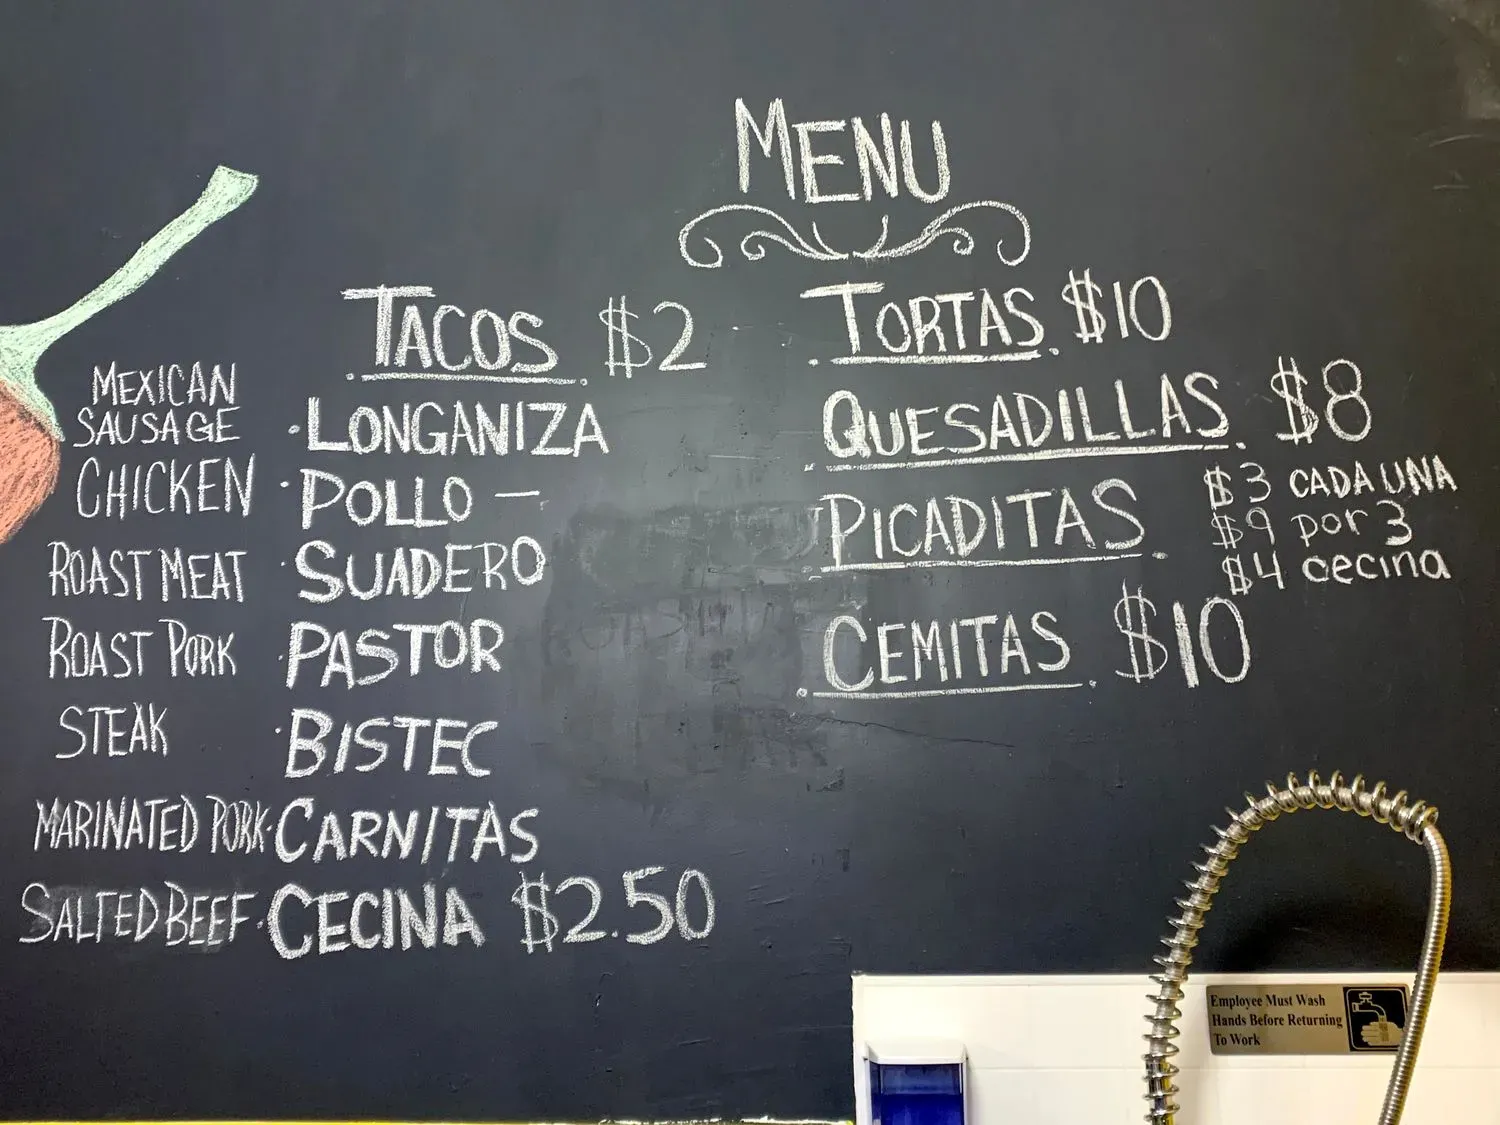 MENU
TACOS $2
MEXICAN
SAUSAGE
· LONGANIZA
CHICKEN · POLLO —
ROAST MEAT · SUADERO
ROAST PORK · PASTOR
STEAK · BISTEC
MARINATED PORK · CARNITAS
SALTED BEEF · CECINA $2.50
TORTAS $10
QUESADILLAS $8
PICADITAS
$3 CADA UNA
$9 por 3
$4 cecina
CEMITAS $10
Employee Must Wash
Hands Before Returning
To Work